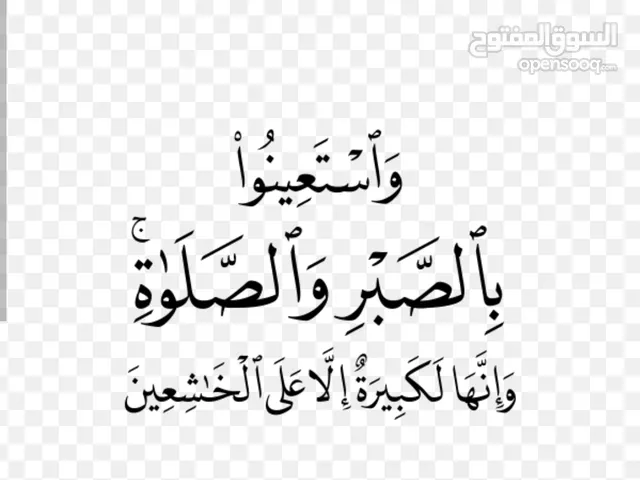 السوق المفتوح
opensooq.com
وَٱسْتَعِينُوا۟
بِٱلصَّبْرِ وَٱلصَّلَوٰةِ ۚ
وَإِنَّهَا لَكَبِيرَةٌ إِلَّا عَلَى ٱلْخَـٰشِعِينَ